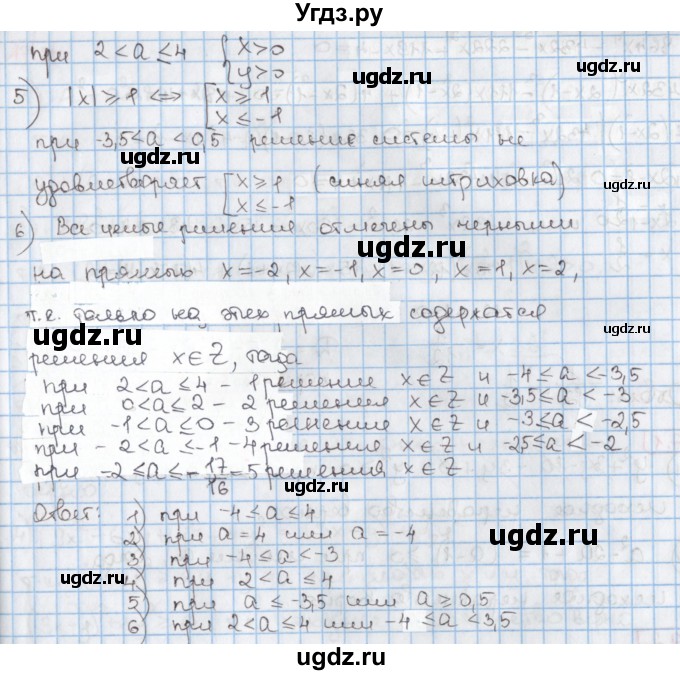 Угдз.ру
при 2 < a ≤ 4 { x > 0
y > 0
ugdz.ru
5) |x| ≥ 1 <=> [ x ≥ 1
x ≤ -1
ugdz.ru
при -3,5 < a < 0,5 решение системы не
ugdz.ru
удовлетворяет [ x ≥ 1 (синяя штриховка)
x ≤ -1
ugdz.ru
6) Все целые решения отмечены черными
ugdz.ru
на прямых x = -2, x = -1, x = 0, x = 1, x = 2,
т.е. только на этих прямых содержатся
ugdz.ru
ugdz.ru
решения x ∈ Z, тогда
при 2 < a ≤ 4 - 1 решение x ∈ Z и -4 ≤ a < -3,5
при 0 < a ≤ 2 - 2 решения x ∈ Z и -3,5 ≤ a < -3
при -1 < a ≤ 0 - 3 решения x ∈ Z и -3 ≤ a < -2,5
при -2 < a ≤ -1 - 4 решения x ∈ Z и -2,5 ≤ a < -2
ugdz.ru
при -2 ≤ a ≤ -17/16 - 5 решения x ∈ Z
ugdz.ru
Ответ: 1) при -4 ≤ a ≤ 4
2) при a = 4 или a = -4
ugdz.ru
3) при -4 ≤ a < -3
ugdz.ru
4) при 2 < a ≤ 4
5) при a ≤ -3,5 или a ≥ 0,5
ugdz.ru
6) при 2 < a ≤ 4 или -4 ≤ a < 3,5
ugdz.ru